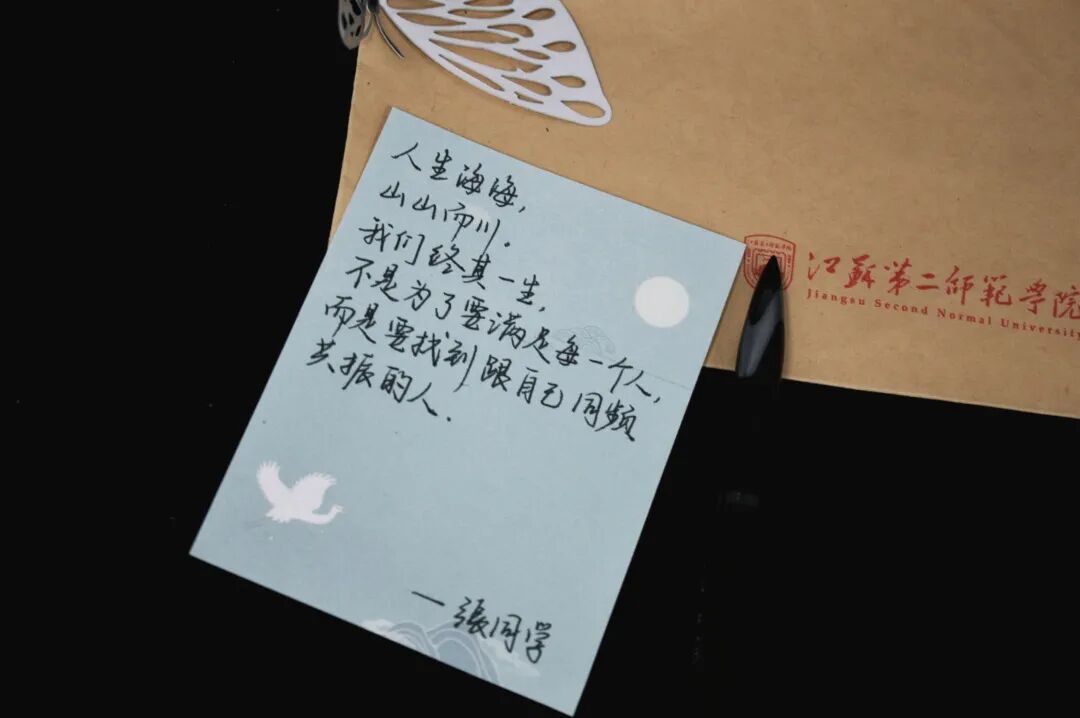 人生海海，
山山而川。
我们终其一生，
不是为了要满足每一个人，
而是要找到跟自己同频
共振的人．
一張同学
江蘇第二师範学院
Jiangsu Second Normal University